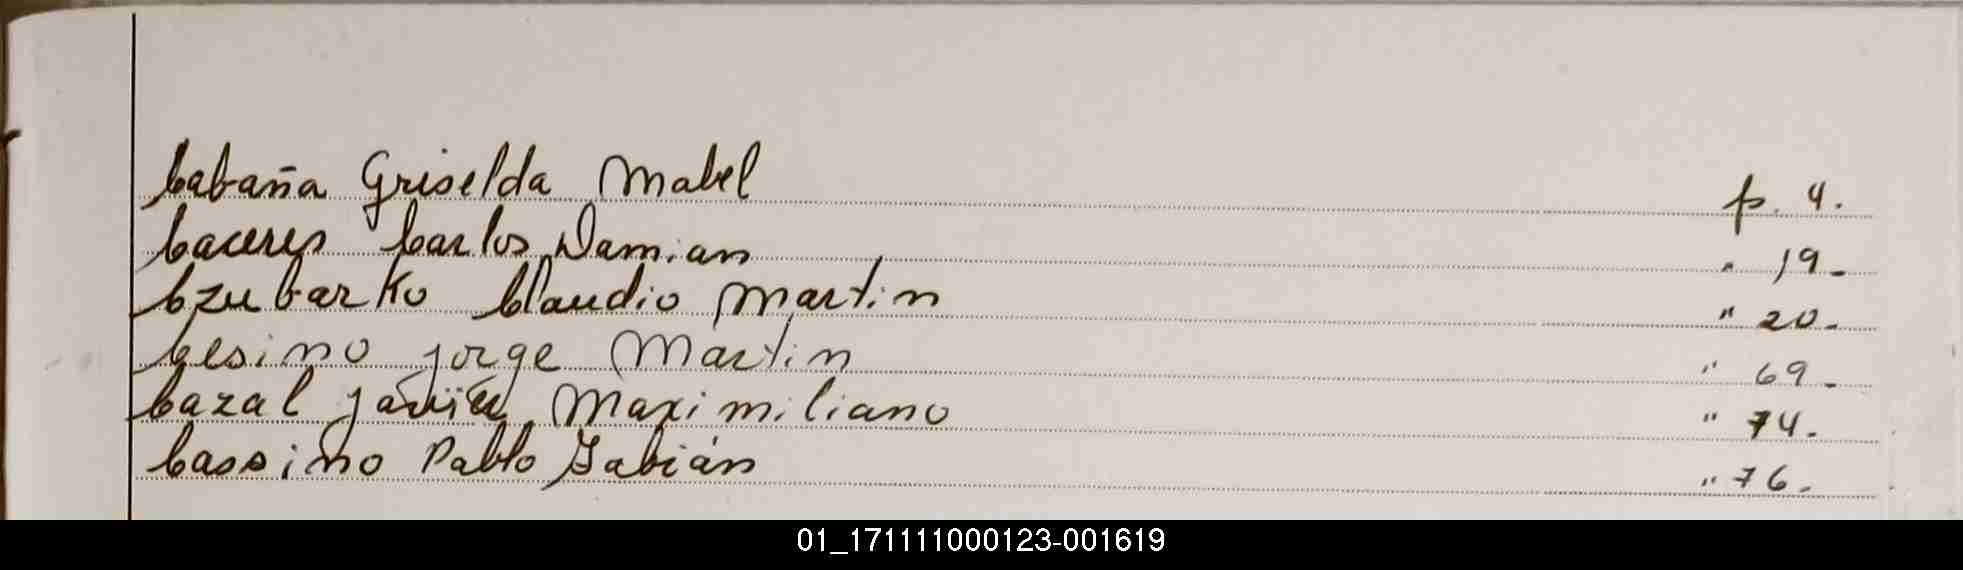 Cabaña Griselda Mabel p. 4.
Caceres Carlos Damian " 19-
Czubarko Claudio Martin " 20-
Cesino Jorge Martin " 69-
Cazal Javier Maximiliano " 74-
Cassino Pablo Fabián " 76-
01_171111000123-001619